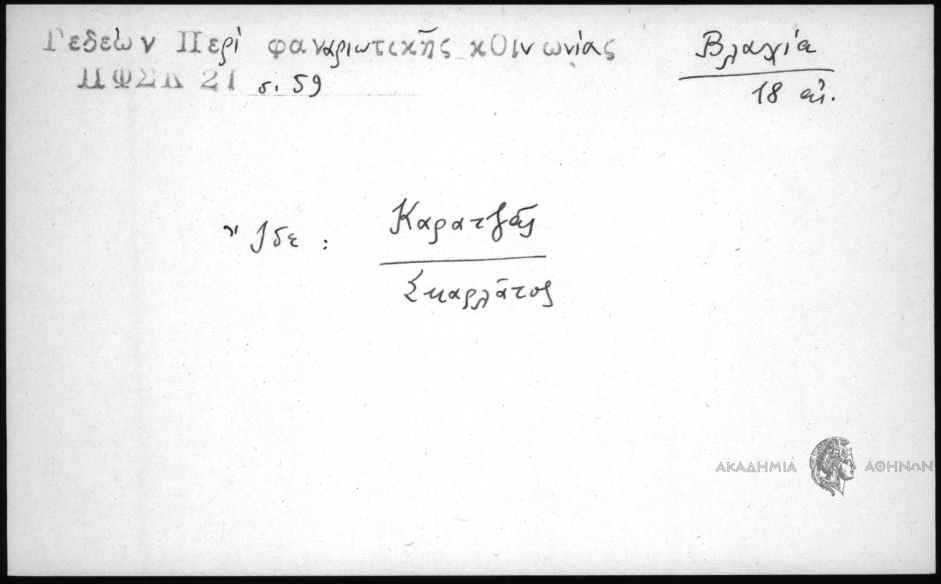 Γεδεών Περί φαναριωτικῆς κοινωνίας
ΠΦΣΚ 21 σ. 59
Βλαχία
18 αἰ.
Ἴδε : Καρατζᾶς
Σκαρλᾶτος
ΑΚΑΔΗΜΙΑ ΑΘΗΝΩΝ